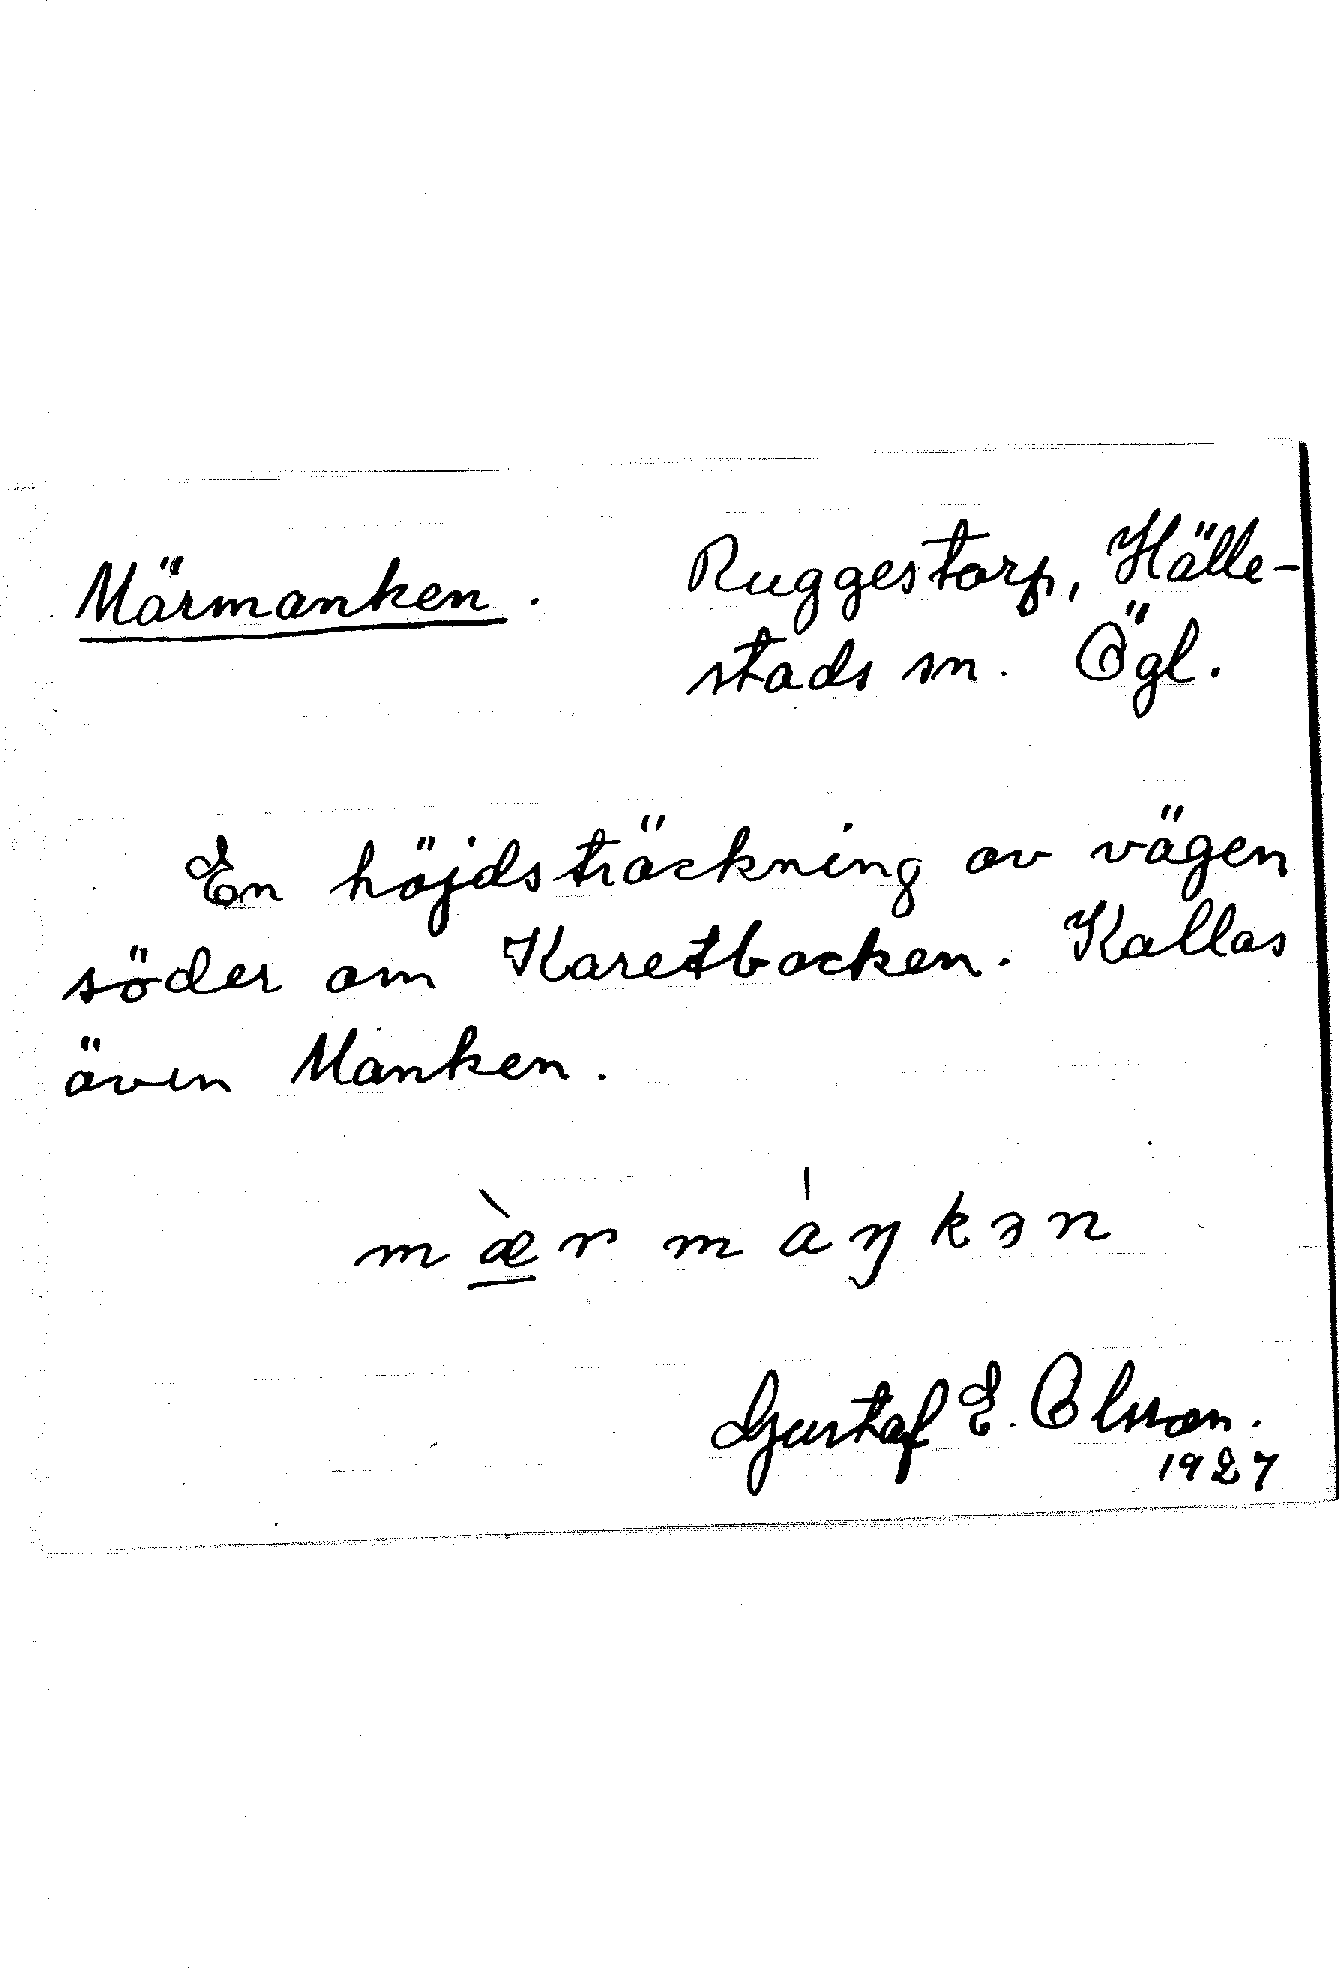 Märmanken. Ruggestorp, Hälle-
stads sn. Ögl.
En höjdsträckning av vägen
söder om Karetbacken. Kallas
även Manken.
mæ̀r máŋkən
Gustaf E. Olsson.
1927